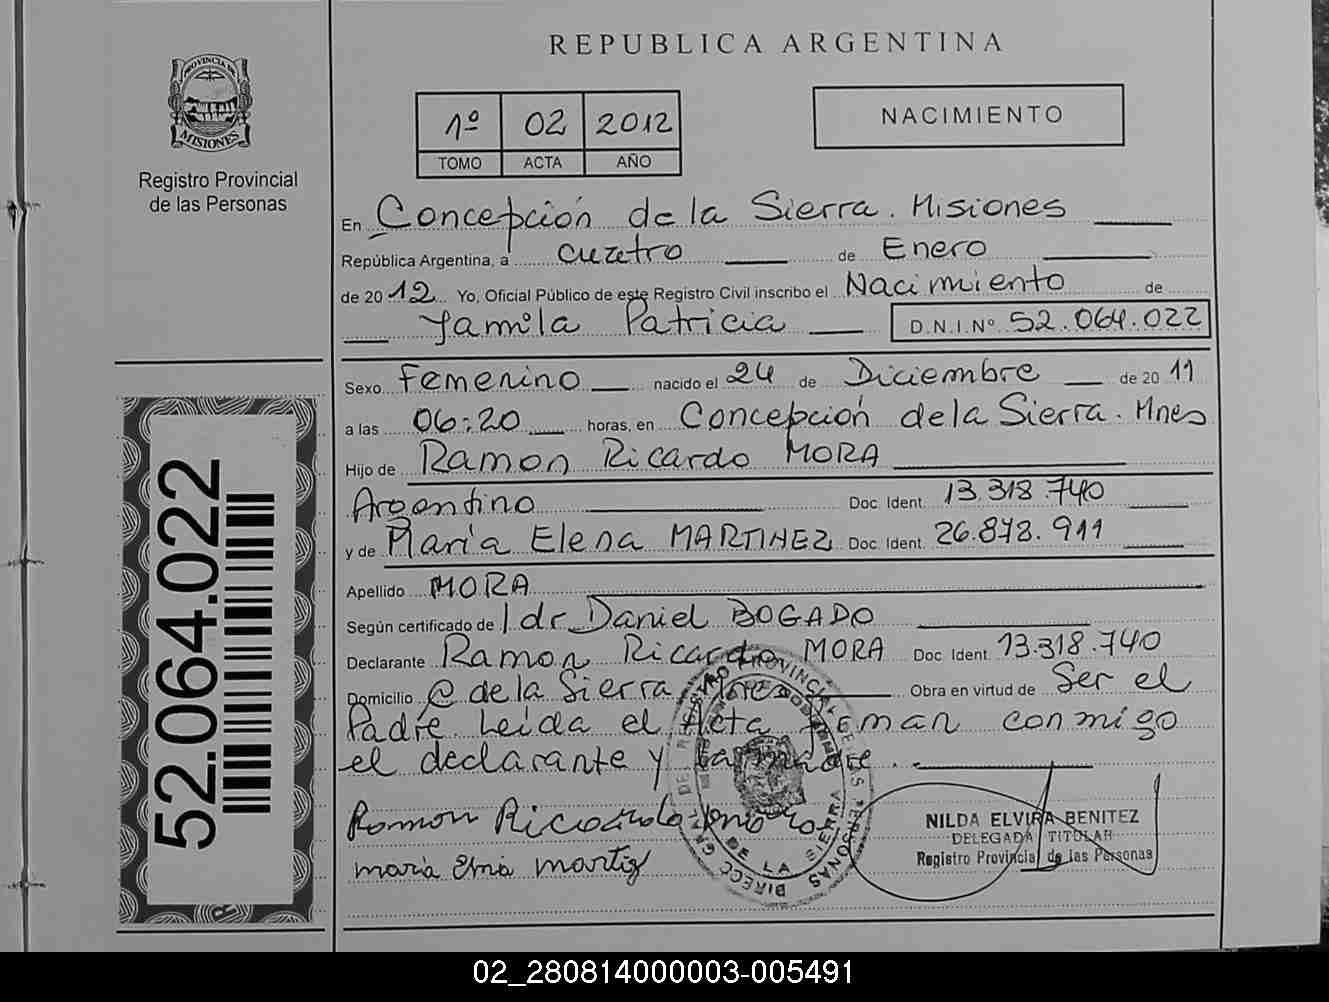 REPUBLICA ARGENTINA
PROVINCIA DE
MISIONES
Registro Provincial
de las Personas
1º 02 2012
TOMO ACTA AÑO
NACIMIENTO
En Concepción de la Sierra. Misiones
República Argentina, a cuatro de Enero
de 2012 Yo, Oficial Público de este Registro Civil inscribo el Nacimiento de
Yamila Patricia D.N.I.Nº 52.064.022
Sexo Femenino nacido el 24 de Diciembre de 2011
a las 06:20 horas, en Concepción de la Sierra. Mnes
Hijo de Ramon Ricardo MORA
Argentino Doc. Ident. 13.318.740
y de Maria Elena MARTINEZ Doc. Ident. 26.872.911
Apellido MORA
Según certificado de dr Daniel BOGADO
Declarante Ramon Ricardo MORA Doc. Ident. 13.318.740
Domicilio C de la Sierra Mnes Obra en virtud de Ser el
Padre. Leida el Acta firman conmigo
el declarante y la madre.
Ramon Ricardo
maria martiz
NILDA ELVIRA BENITEZ
DELEGADA TITULAR
Registro Provincial de las Personas
DE LA SIERRA
52.064.022
02_280814000003-005491